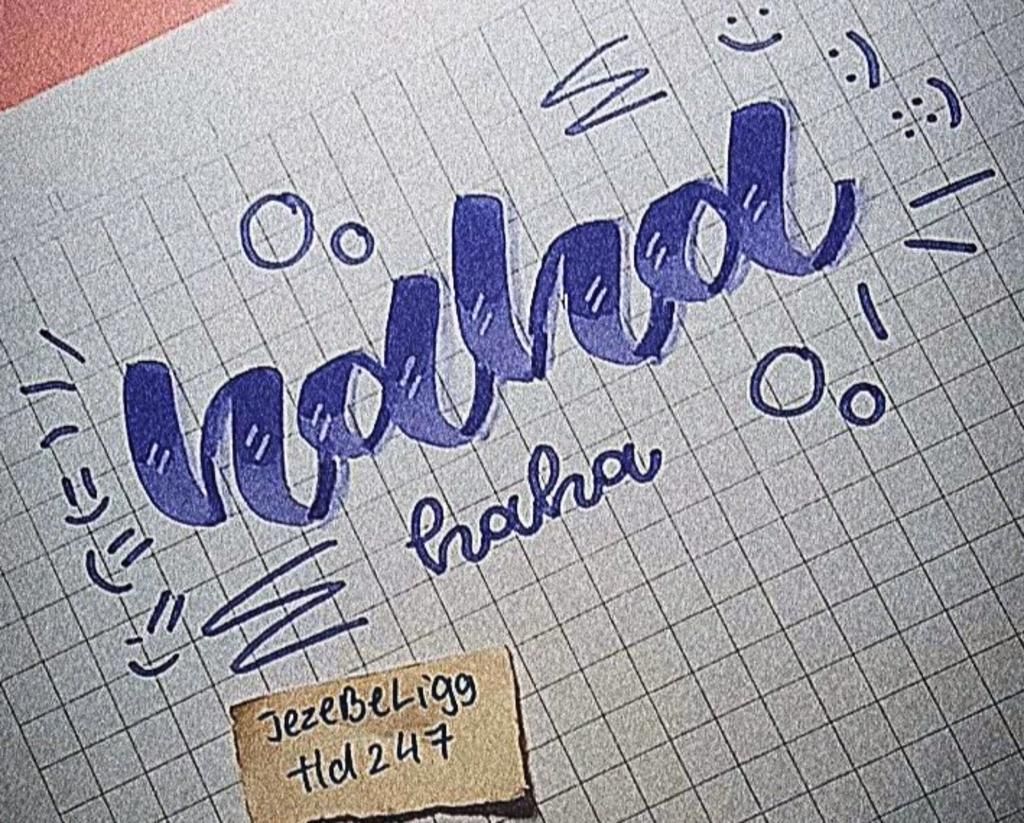 haha
haha
JezeBeLigg
tld 247